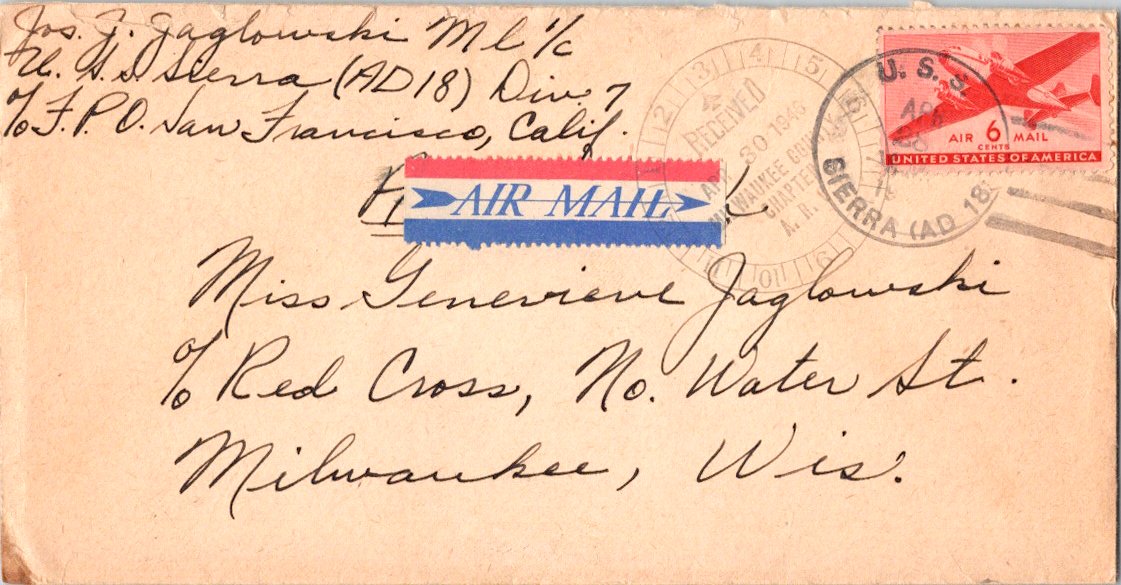 Jos. J. Jaglowski M 1/c
U.S.S. Sierra (AD 18) Div. 7
c/o F.P.O. San Francisco, Calif.
U. S. S.
APR
SIERRA (AD 18)
AIR 6 MAIL
CENTS
UNITED STATES OF AMERICA
2 3 4 5
RECEIVED
APR 30 1946
MILWAUKEE
CHAPTER
A. R.
9 10 11
AIR MAIL
Miss Genevieve Jaglowski
c/o Red Cross, No. Water St.
Milwaukee, Wis.